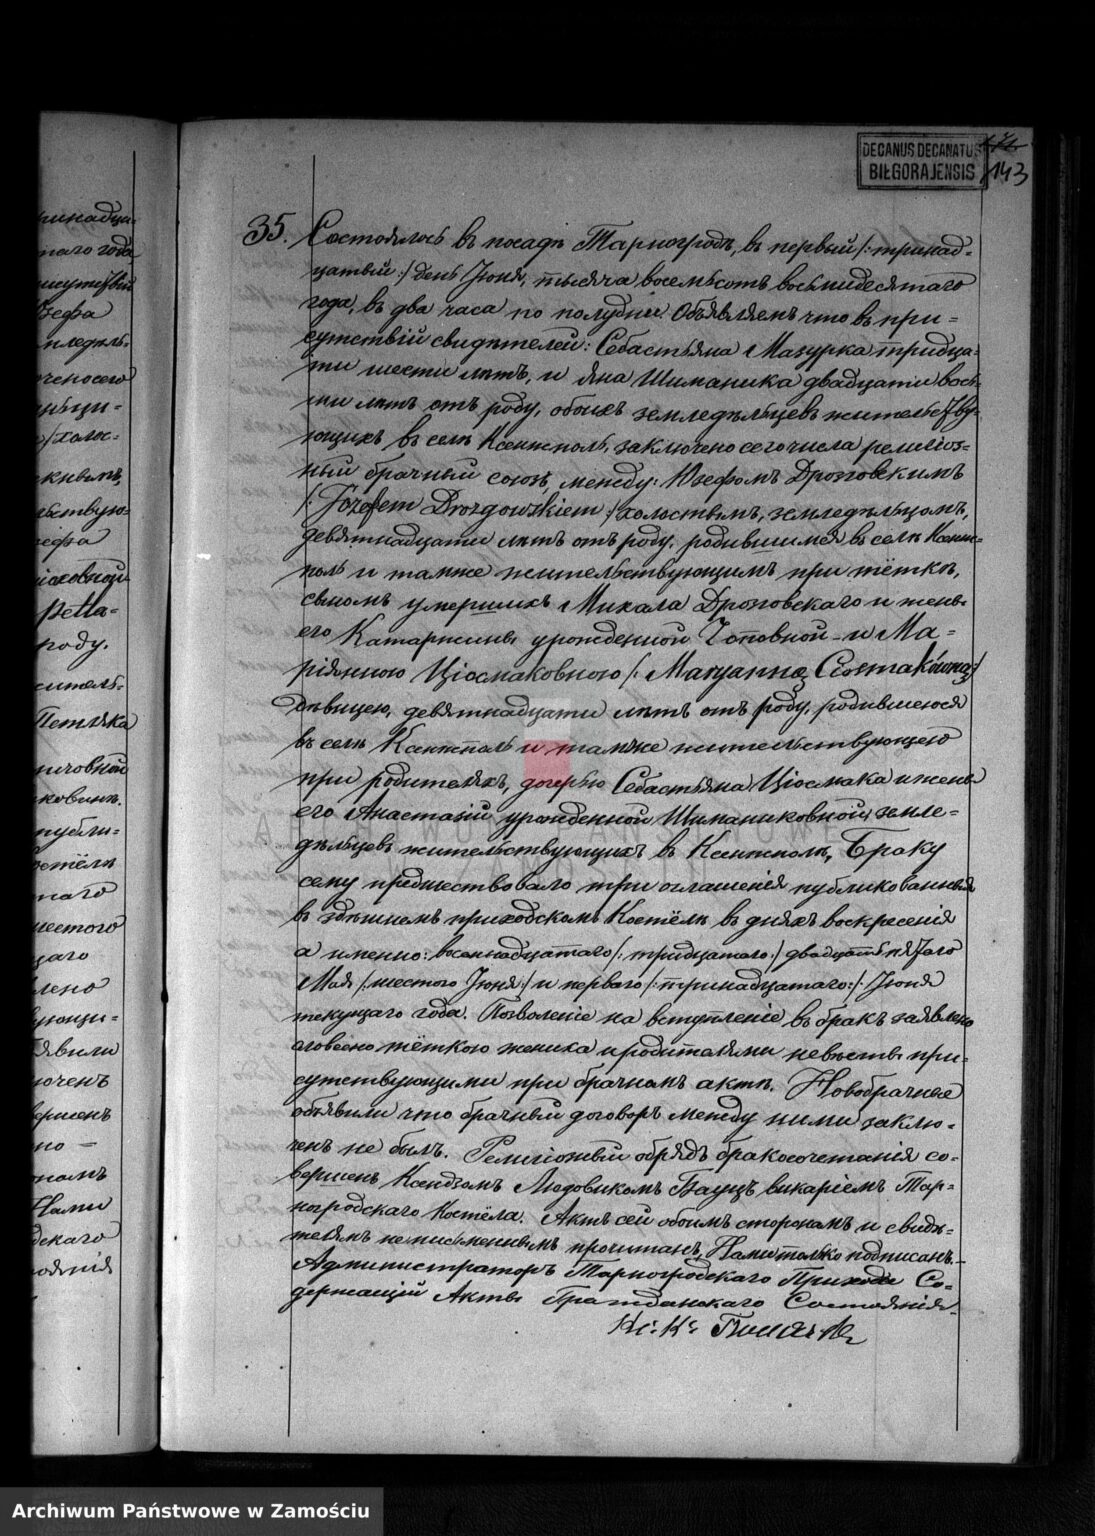 DECANUS DECANATUS
BIŁGORAJENSIS
143
35.
Состоялось въ посадѣ Тарногродѣ, въ первый /: тринад=
цатый :/ день Іюня, тысяча восемьсотъ восьмидесятаго
года, въ два часа по полудни. Объявляемъ что въ при=
сутствій свидѣтелей: Себастьяна Мазурка тридца=
ти шести лѣтъ, и Яна Шиманика двадцати вось=
ми лѣтъ отъ роду, обоихъ земледѣльцевъ жительству=
ющихъ въ селѣ Ксенжполь, заключено сего числа религіоз=
ный брачный союзъ, между: Юзефомъ Дрозговскимъ
/: Józefem Drozgowskiem :/ холостымъ, земледѣльцомъ,
девятнадцати лѣтъ отъ роду, родившимся въ селѣ Ксенж=
поль и тамже жительствующимъ при тёткѣ,
сыномъ умершихъ Михала Дрозговскаго и жены
его Катаржины урожденной - и Ма=
ріянною Ціосмаковною /: Maryanną Ciosmakówną :/
дѣвицею, девятнадцати лѣтъ отъ роду, родившеюся
въ селѣ Ксенжполь и тамже жительствующею
при родителяхъ, дочерью Себастьяна Ціосмака и жены
его Анастазіи урожденной Шиманиковной земле=
дѣльцевъ жительствующихъ въ Ксенжполѣ, Браку
сему предшествовало три оглашенія публикованныя
въ здѣшнемъ приходскомъ Костёлѣ въ дняхъ воскресенія
а именно: восемнадцатаго /: тридцатаго :/ двадцать пятаго
Мая /: шестого Іюня :/ и перваго /: тринадцатаго :/ Іюня
текущаго года. Позволеніе на вступленіе въ бракъ заявлено
словесно тёткою жениха и родителями невѣсты при=
сутствующими при брачномъ актѣ. Новобрачные
объявили что брачный договоръ между ними заклю=
ченъ не былъ. Религіозный обрядъ бракосочетанія со=
вершенъ Ксендзомъ Людовикомъ Бауцъ викаріемъ Тар=
ногродскаго Костёла. Актъ сей обоимъ сторонамъ и свидѣ=
телямъ неписьменнымъ прочитанъ, Нами только подписанъ.
Администраторъ Тарногродскаго Прихода Со=
держащій Акты Гражданскаго Состоянія.
Archiwum Państwowe w Zamościu